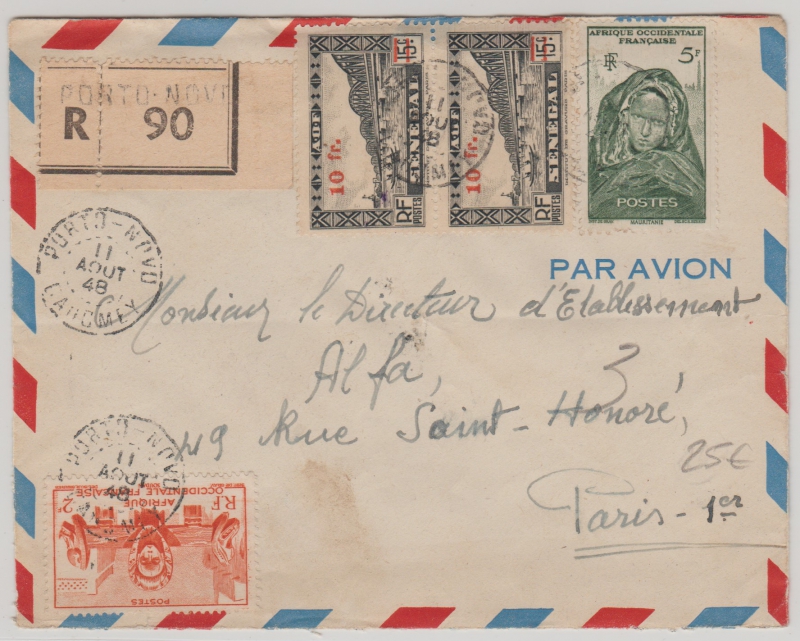 PORTO-NOVO
R 90
AOF
10 fr.
15c
SENEGAL
RF
POSTES
AOF
10 fr.
15c
SENEGAL
RF
POSTES
AFRIQUE OCCIDENTALE
FRANÇAISE
RF 5F
POSTES
MAURITANIE
PAR AVION
PORTO-NOVO
11
AOUT
48
DAHOMEY
Monsieur le Directeur d'Etablissement
Alfa,
3
49 Rue Saint-Honoré,
25€
Paris-1er
PORTO-NOVO
11
AOUT
48
RF AFRIQUE 2F
OCCIDENTALE FRANÇAISE
POSTES